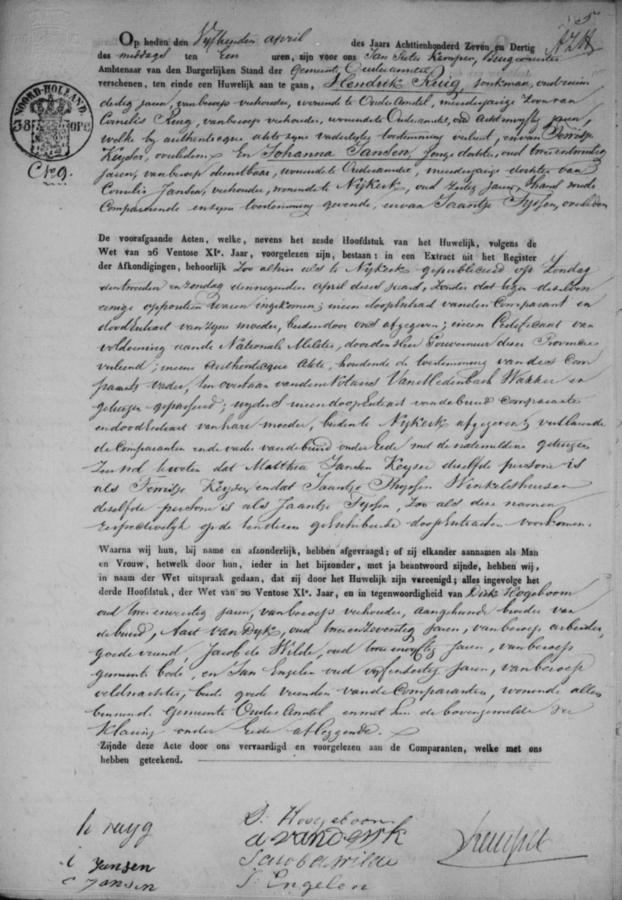 5
N 24
Op heden den Vijftienden april des Jaars Achttienhonderd Zeven en Dertig
des middags ten Een uren, zijn voor ons Jan Pieter Kemper, Burgemeester
Ambtenaar van den Burgerlijken Stand der Gemeente Ouderamstel
verschenen, ten einde een Huwelijk aan te gaan, Hendrik Ruig, jonkman, oud
dertig jaren, van beroep veehouder, woonende te Ouder Amstel, meerderjarige Zoon van
Cornelis Ruig, van beroep veehouder, woonende te Ouderamstel, oud jaren,
welke by authentieque akte zyne vaderlyke toestemming verleent, en van
Keyser, overleden En Johanna Jansen, jonge dochter, oud
jaren, van beroep dienstbaar, woonende te Ouderamstel, meerderjarige dochter van
Cornelis Jansen, veehouder, woonende te Nykerk, oud jaren, mede
Comparerende en zyne toestemming gevende, en van Jaantje Tyssen, overleden
NOORD-HOLLAND.
38 OPC
De voorafgaande Acten, welke, nevens het zesde Hoofdstuk van het Huwelijk, volgens de
Wet van 26 Ventose XIe. Jaar, voorgelezen zijn, bestaan: in een Extract uit het Register
der Afkondigingen, behoorlijk Zoo alhier als te Nykerk gepubliceerd op Zondag
den tweeden en zondag den negenden april dezes jaars, zonder dat tegen dezelven
eenige oppositien waren ingekomen; in een doopExtract van den Comparant en
doodExtract van zyne moeder, beiden door ons afgegeven; in een Certificaat van
voldoening aan de Nationale Militie, door den Heer Gouverneur dezer Provincie
verleend; in eene Authentieque Akte, houdende de toestemming van des Com
parants vader, ten overstaan van den Notaris Van Medenbach Wakker en
getuigen gepasseerd; in een doopExtract van de bruid Comparante
en doodExtract van hare moeder, beiden te Nykerk afgegeven; verklarende
de Comparanten en de vader van de bruid onder Eede met de natemeldene getuigen
dat Matthia Jansen Keyser dieselfde persoon is
als Keyser, en dat Jaantje Thyssen Winkelshuisen
dieselfde persoon is als Jaantje Tyssen, zoo als deze namen
respectivelyk op de doopExtracten voorkomen.
Waarna wij hun, bij name en afzonderlijk, hebben afgevraagd: of zij elkander aannamen als Man
en Vrouw, hetwelk door hun, ieder in het bijzonder, met ja beantwoord zijnde, hebben wij,
in naam der Wet uitspraak gedaan, dat zij door het Huwelijk zijn vereenigd; alles ingevolge het
derde Hoofdstuk, der Wet van 20 Ventose XIe. Jaar, en in tegenwoordigheid van Dirk Hogeboom
oud jaren, van beroep veehouder, aangehuwde broeder van
de bruid, Aart van Dyk, oud drie en zeventig jaren, van beroep arbeider,
goede vriend, Jacob de Wilde, oud jaren, van beroep
gemeente bode, en Jan Engelen oud jaren, van beroep
veldwachter, beide goede vrienden van de Comparanten, woonende allen
binnen de Gemeente Ouder Amstel, en met hun de bovengemelde ver
klaring onder Eede afleggende.
Zijnde deze Acte door ons vervaardigd en voorgelezen aan de Comparanten, welke met ons
hebben geteekend.
h ruyg
D: Hoogeboom
a van deyk
C Jansen
Jacob de wilde
Kemper
C Jansen
J: Engelen